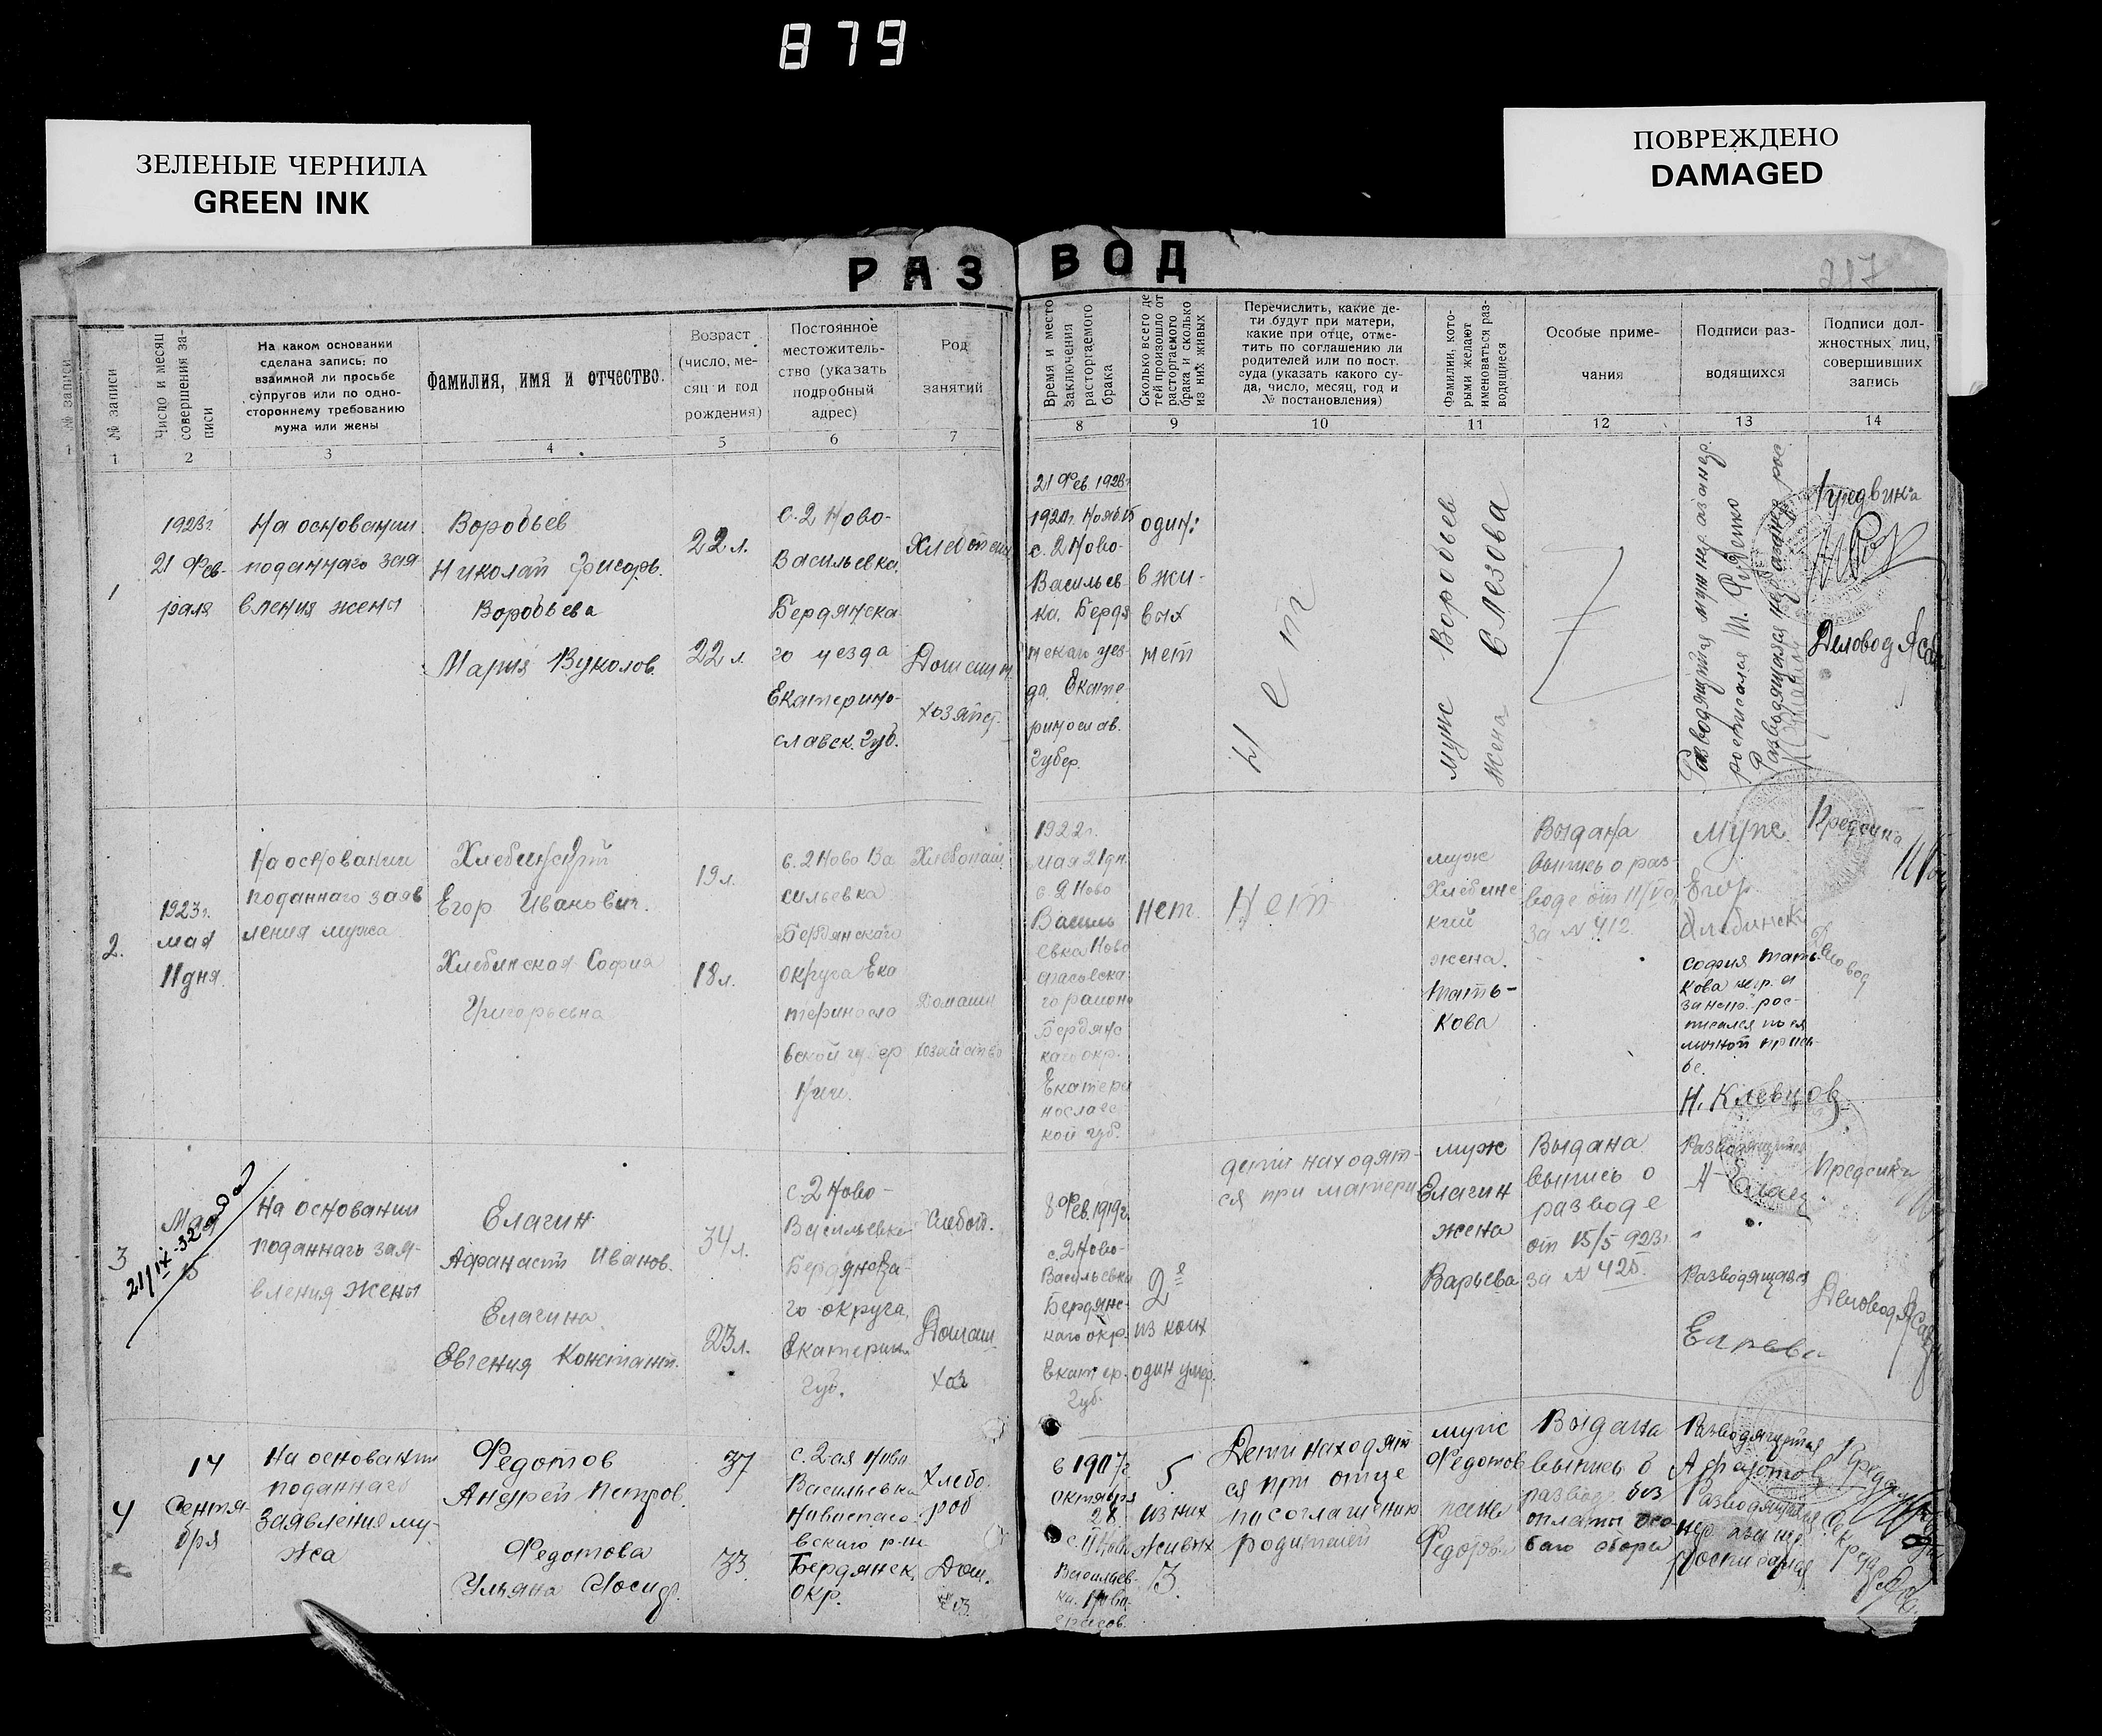 879
ЗЕЛЕНЫЕ ЧЕРНИЛА
GREEN INK
ПОВРЕЖДЕНО
DAMAGED
РАЗВОД
217
№ записи
1
№ записи
1
Число и месяц совершения записи
2
На каком основании
сделана запись: по
взаимной ли просьбе
супругов или по одно-
стороннему требованию
мужа или жены
3
Фамилия, имя и отчество.
4
Возраст
(число, ме-
сяц и год
рождения)
5
Постоянное
местожитель-
ство (указать
подробный
адрес)
6
Род
занятий
7
Время и место
заключения
расторгаемого
брака
8
Сколько всего де
тей произошло от
расторгаемого
брака и сколько
из них живых
9
Перечислить, какие де-
ти будут при матери,
какие при отце, отме-
тить по соглашению ли
родителей или по пост.
суда (указать какого су-
да, число, месяц, год и
№ постановления)
10
Фамилии, кото-
рыми желают
именоваться раз-
водящиеся
11
Особые приме-
чания
12
Подписи раз-
водящихся
13
Подписи дол-
жностных лиц,
совершивших
запись
14
1
1923г.
21 Фев-
раля
На основании
поданнаго зая
вления жены
Воробьев
Николай
Воробьева
Мария Вуколов.
22 л.
22 л.
с. 2 Ново-
Васильевка
Бердянска
го уезда
Екатерино-
славск. Губ.
Домашн.
хозяйст.
21 Фев. 1923г
с. 2 Ново-
Васильев
ка, Бердя
нскаго уез
да, Екате
ринослав.
Губер.
один:
в жи-
вых
нет
Нет
муж Воробьев
жена Слезова
Деловод
2.
1923г.
мая
11 дня.
На основании
поданнаго заяв
ления мужа
Хлебинский
Егор Иванович.
Хлебинская София
Григорьевна
19 л.
18 л.
с. 2 Ново Ва
сильевка
Бердянскаго
округа Ека
териносла
вской губер
нии.
Хлебопаш.
Домашн
хозяйство
1922г.
мая 21 дн.
с 2 Ново
Василь
евка Ново
спасовска
го района
Бердянс
каго окр.
Екатери
нославс
кой губ.
нет.
Нет
муж
Хлебинс
кий
жена.
Мать-
кова
Выдана
выпись о раз-
воде от 11/V
за № 412
муж
Егор
Хлебинск
София Мать-
кова негр. а
за неё рос-
писался по ея
личной прось-
бе.
Н. Клевцов.
3
Мая
15
21/IX-32 года
На основании
поданнаго зая-
вления жены
Елагин
Афанасий Иванов.
Елагина
Евгения Констант.
34 л.
23 л.
с. 2 Ново-
Васильевка
го округа
Екатерин.
Губ.
Хлебоп.
Домаш.
хоз
8 Фев. 1919г.
с. 2 Ново-
Васильевка
Бердянс-
каго окр.
Екатер.
Губ.
2
из коих
один умер.
дети находят-
ся при матери
муж
Елагин
жена
Варьева
Выдана
выпись о
разводе
от 15/5 923г.
за № 425.
Разводящийся
А Елаг.
Разводящаяся
4
14
Сентя-
бря
На основании
поданнаго
заявления му-
жа
Федотов
Андрей Петров.
Федотова
Ульяна Иосиф.
37
33
с. 2-ая Ново
Васильевка
Новоспасо-
вскаго р-на
Бердянск.
окр.
Хлебо-
роб
Дом.
хоз.
в 1907г
октября
28
Васильев-
ка, Ново-
спасов.
5
из них
живых
3.
Дети находят-
ся при отце
по соглашению
родителей
муж
Федотов
жена
Федотова
Выдана
выпись о
разводе без
оплаты
Разводящийся
А Федотов
Разводящаяся